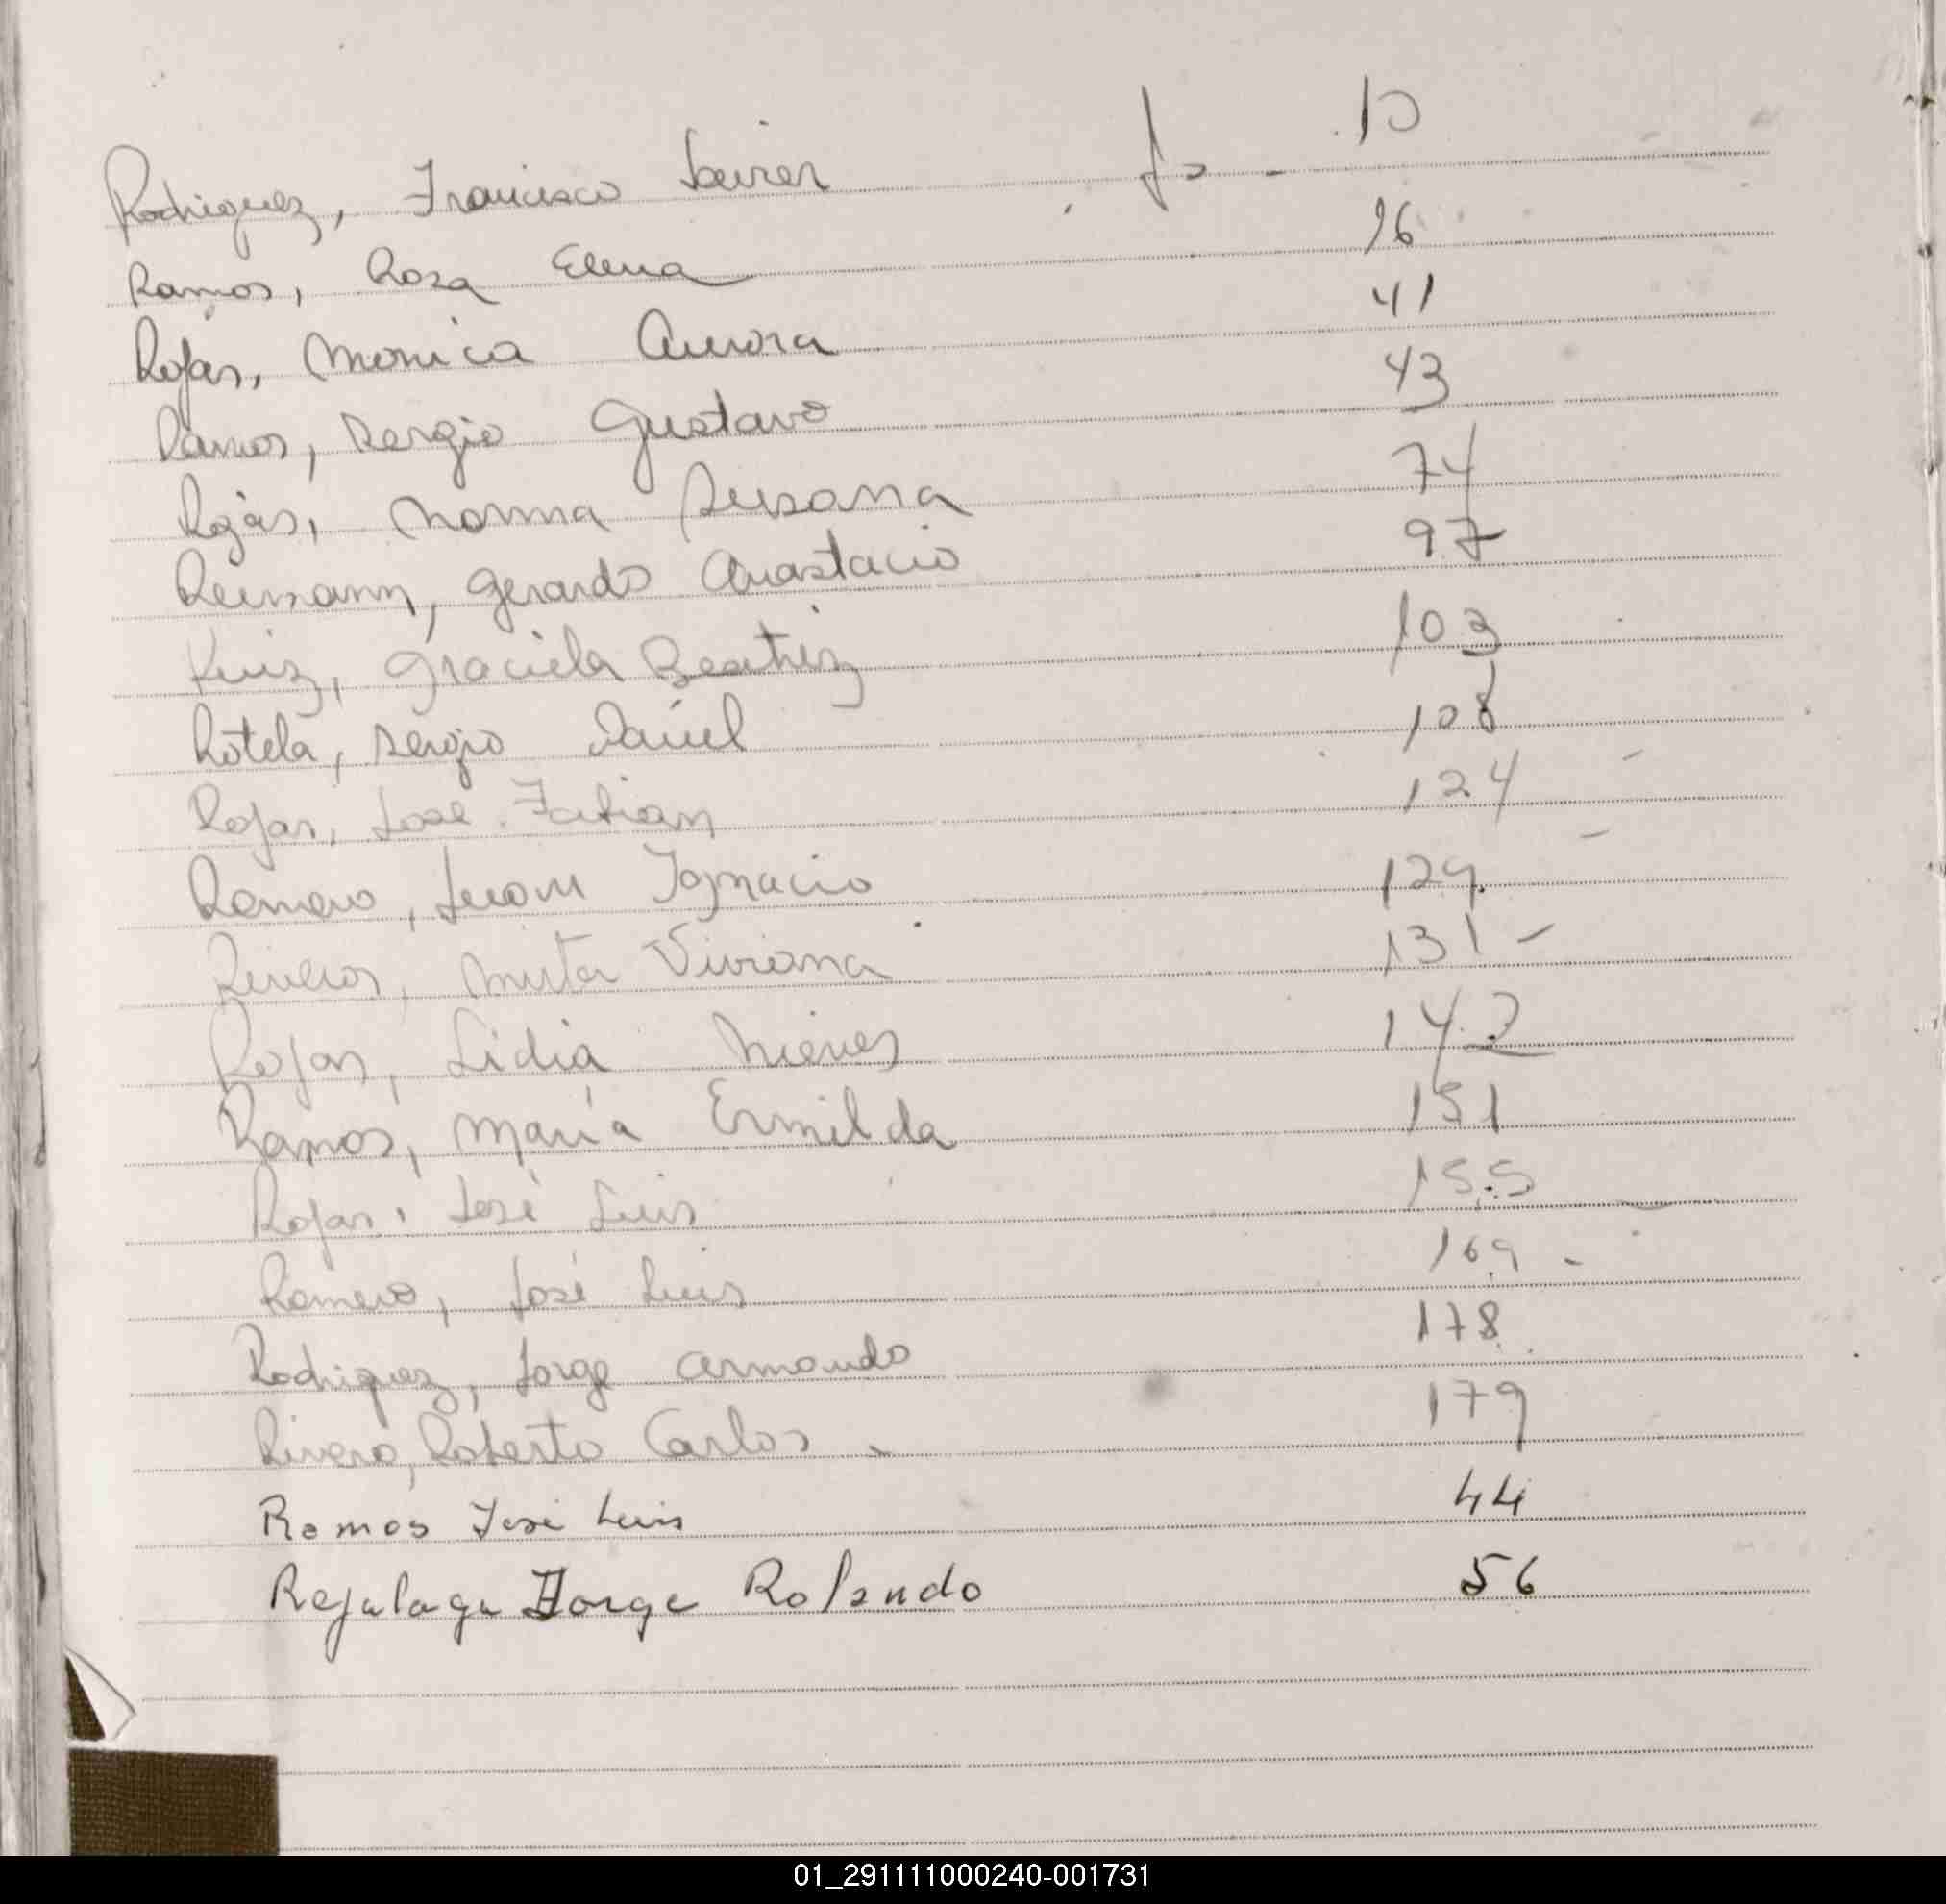 Rodriguez, Francisco Javier fo - 10
Ramos, Rosa Elena 16
Rojas, Monica Aurora 41
Ramos, Sergio Gustavo 43
Rojas, Norma Susana 74
Reissann, Gerardo Anastacio 97
Ruiz, Graciela Beatriz 103
Rotela, Sergio Daniel 108
Rojas, Jose Fabian 124
Romero, Juan Ignacio 129
Riveros, Mirta Viviana 131 -
Rojas, Lidia Nieves 142
Ramos, María Ermilda 151
Rojas, José Luis 155
Romero, José Luis 169 -
Rodriguez, Jorge Armando 178
Rivero, Roberto Carlos - 179
Ramos José Luis 44
Rejalaga Jorge Rolando 56
01_291111000240-001731